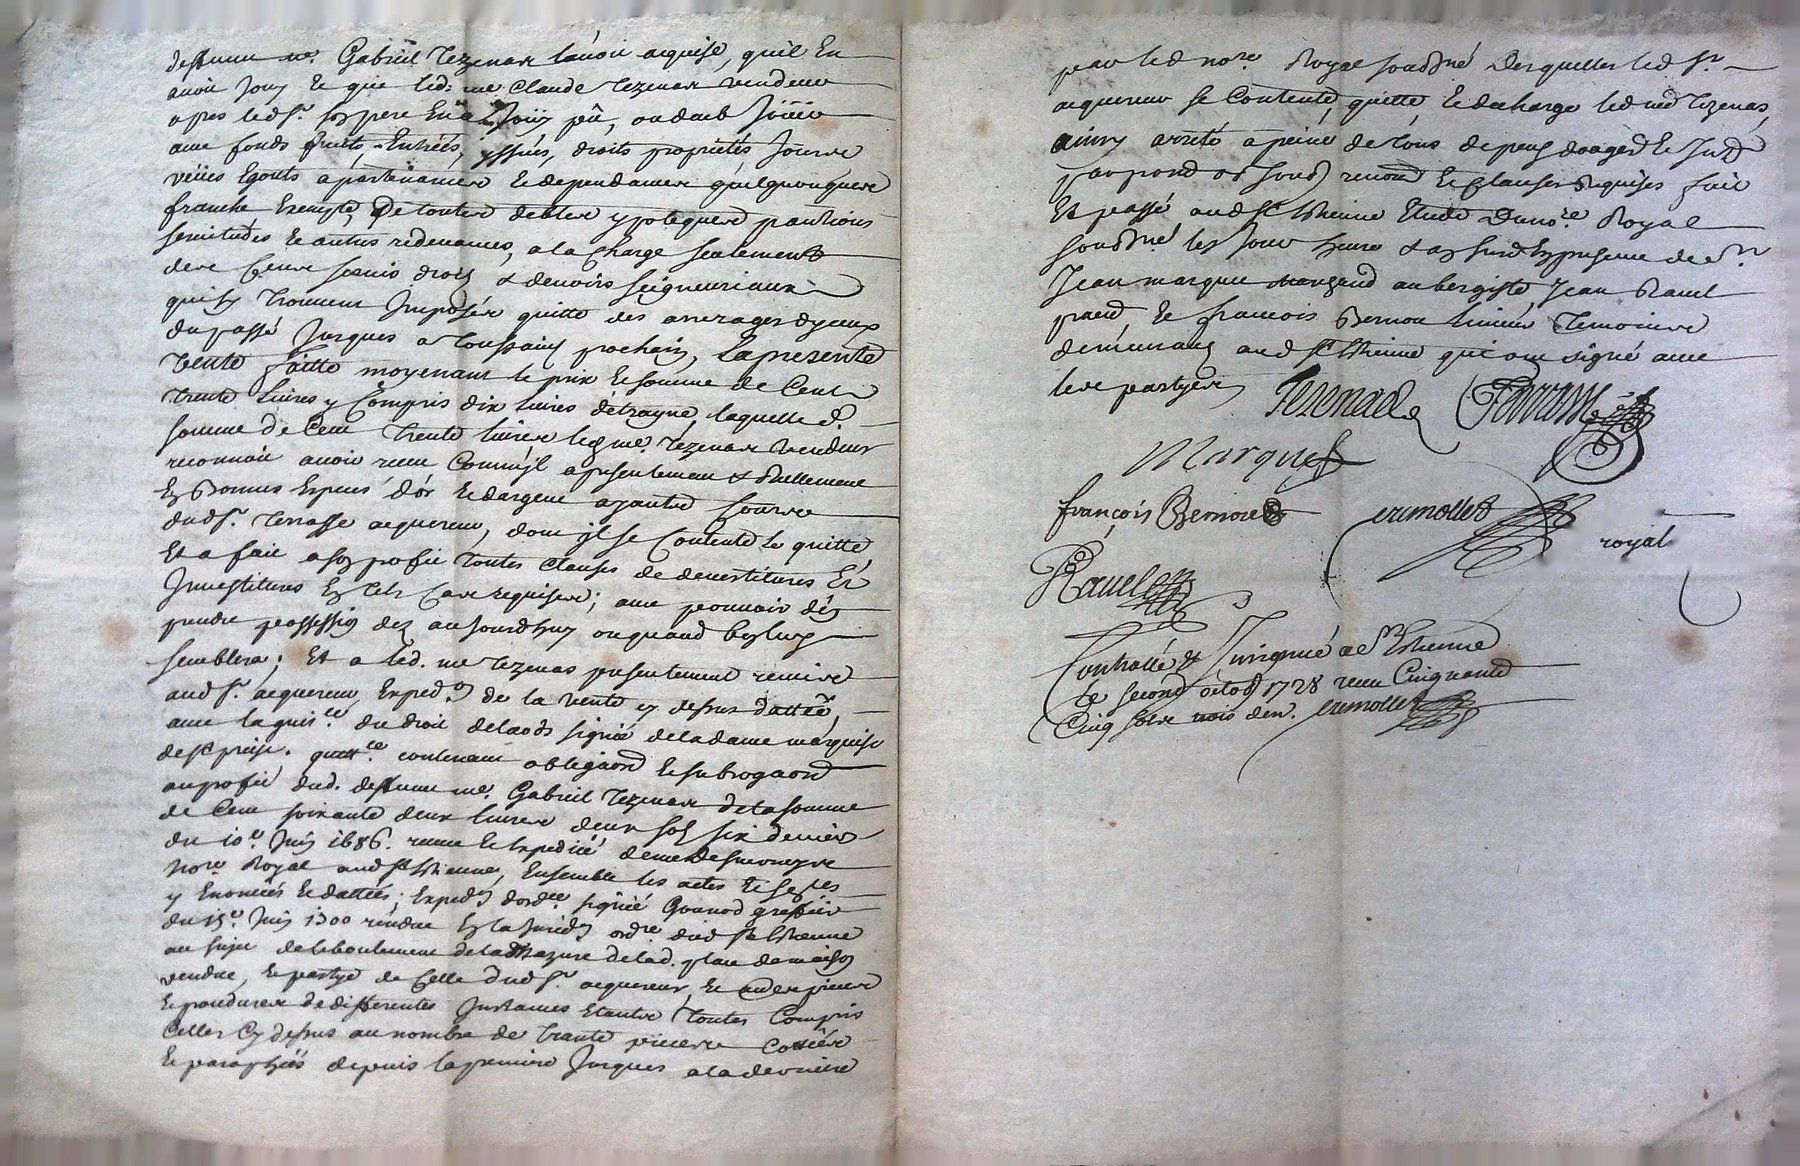 deffunt me. Gabriel Tezenas l'avoit acquise, quil En
avoit Jouy Et que led: me Claude Tezenas vendeur
apres led sr. son pere En a Jouy pû, ou deub Joüir
avec fonds fruits Entrées, yssües, droits proprietés Jours
veües Egouts apartenances Et dependances quelquonques
franche Exempte, De toutes debtes ypoteques pantions
servitudes Et autres redevances, a la charge seulement
des Cens servis droits & devoirs seigneuriaux
qui sy trouvent Imposés quitte des arrerages dyceux
du passé Jusques a Toussains prochain, La presente
vente faitte moyenant le prix Et somme de Cent
trente Livres y Compris dix livres detrayne, laquelle d.
somme de Cent trente livres led me. Tezenas vendeur
reconnoit avoir receu Comme jl a presentement & reellement
En Bonnes Especes d'or Et dargent ayants Cours
dud sr. Terrasse acquereur, dont jl se Contente le quitte
Et a fait a son profit toutes Clauses de devestitures Et
Jnvestitures En tels Cas requises; avec pouvoir dEn
prendre possession dez aujourdhuy ou quand bon luy
semblera; Et a led. me Tezenas presentement remis
aud sr. acquereur, Exped.on de la vente cy dessus dattée,
avec la quit.ce du droit de laods signée de la dame marquise
de St priest. quitt.ce contenant obligaon Et subrogaon
au profit dud. deffunt me. Gabriel Tezenas de la somme
de Cent soixante deux livres deux sols six deniers
du 10.e Juin 1686. receue Et Expediée de me Desverneys
No.re Royal aud St Etienne, Ensemble les actes
y Enoncés Et dattés; Exped.on dord.ce signée greffier
du 15.e Juin 1700 rendue En la Jurid.on ord.re dud St Etienne
au sujet de leboulement de la Mazure de lad. place de maison
vendue, Et partye de Celle dud sr. acquereur, Et autres pieces
Et procedures de differentes Jnstances Etants toutes Compris
Celles Cy dessus au nombre de trante pieces Cottées
Et paraphées depuis la premiere Jusques a la derniere
par led no.re Royal soussigné Desquelles led sr.
acquereur se Contente, quitte, Et decharge led me Tezenas,
ainsy arresté a peine de tous depens domages Et Jnt.
par promes. oblig. soub. renon. Et Clauses Requises fait
Et passé aud St Etienne Etude Du no.re Royal
soussigné les Jour heure & an susd En presence de sr.
Jean marque marchand aubergiste, Jean Ravel
prat. Et francois Bernou Temoins
demeurans aud St Etienne qui ont signé avec
les partyes
Tezenas Terrasse
Marque
françois Bernou
erimollet royal
Ravel
Controllé & Jnsignué a St Etienne
le second octob. 1728 receu Cinquante
Cinq sols trois den. erimollet